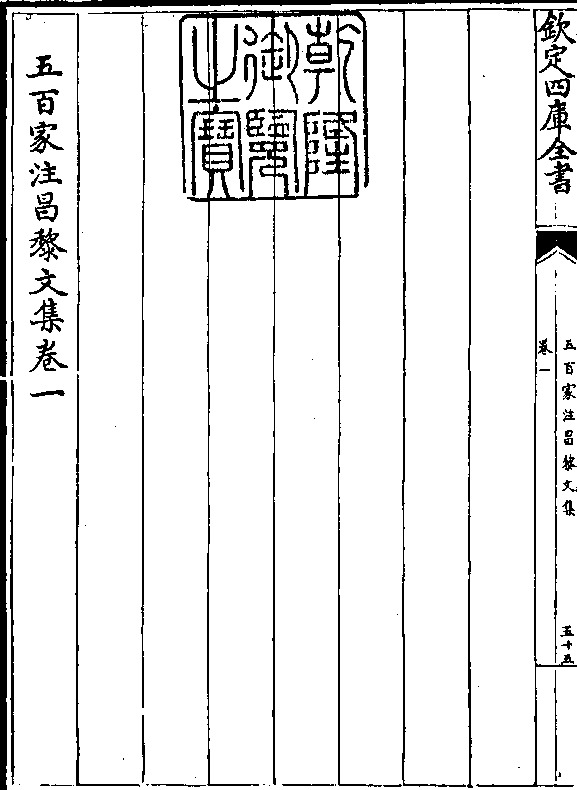 欽定四庫全書
五百家注昌黎文集
卷一
五十五
乾隆
御覽
之寶
五百家注昌黎文集卷一